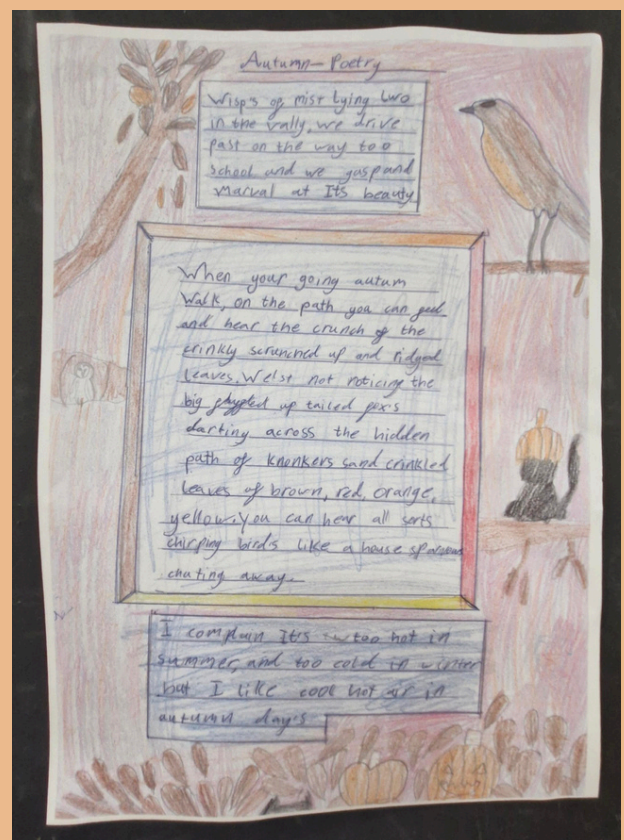 Autumn—Poetry
Wisp's of mist lying lwo
in the vally, we drive
past on the way too
school and we gasp and
Marval at Its beauty
When your going autum
Walk, on the path you can feel
and hear the crunch of the
crinkly scrunched up and ridged
leaves. Welst not noticing the
big up tailed fox's
darting across the hidden
path of knonkers sand crinkled
leaves of brown, red, orange,
yellow. You can hear all sorts
chirping bird's like a house
chating away.
I complain Its too hot in
summer, and too cold in winter
but I like cool hot air in
autumn day's